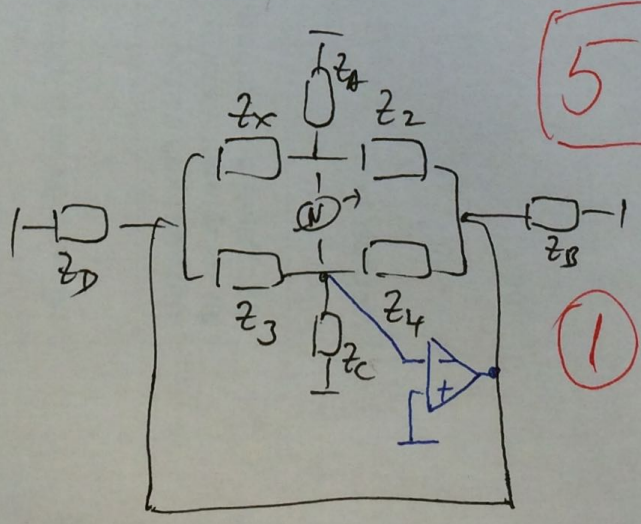 Z_A
5
Z_x
Z_2
N
Z_D
Z_B
Z_3
Z_4
Z_C
-
+
1